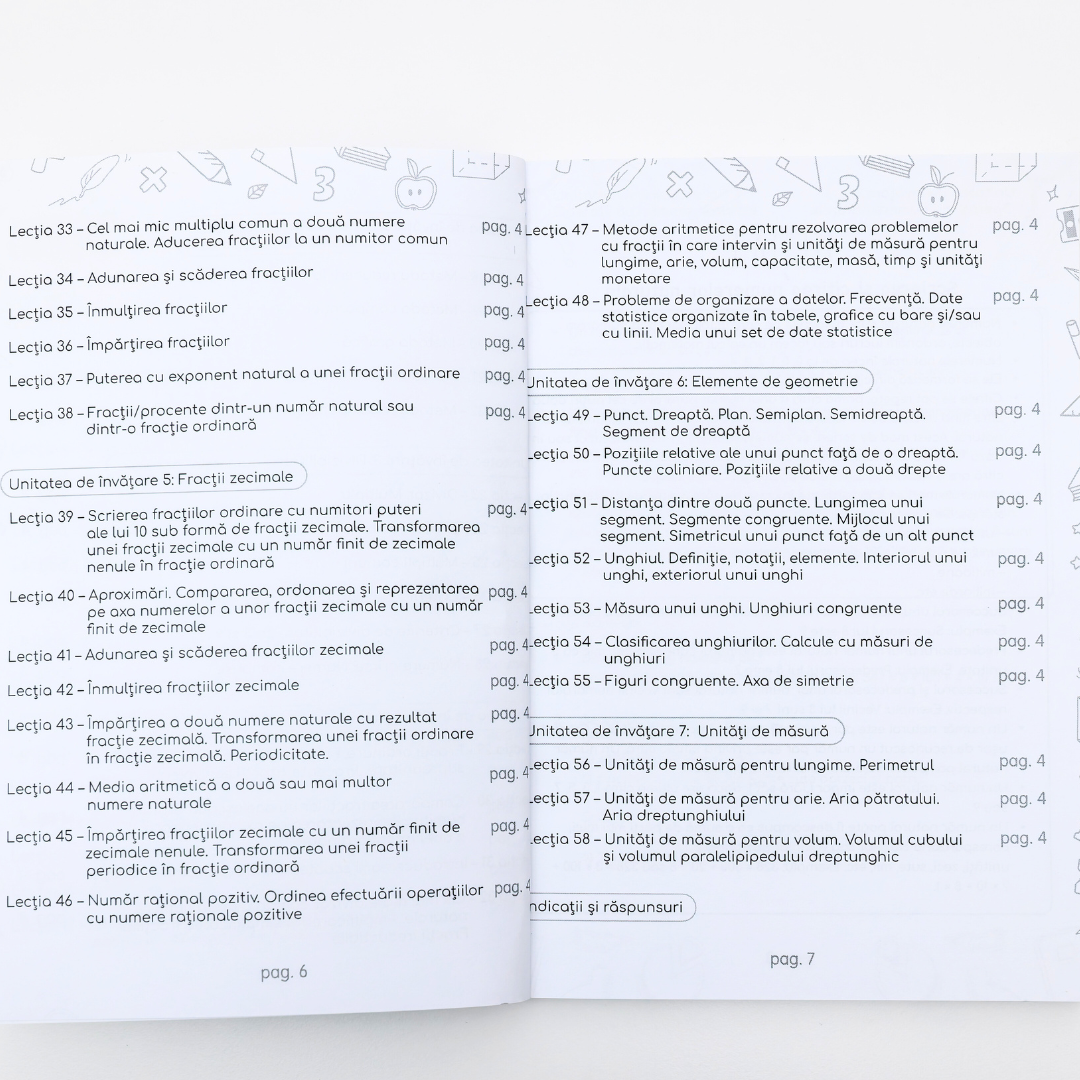 3
Lecția 33 – Cel mai mic multiplu comun a două numere pag. 4
naturale. Aducerea fracțiilor la un numitor comun
Lecția 34 – Adunarea și scăderea fracțiilor pag. 4
Lecția 35 – Înmulțirea fracțiilor pag. 4
Lecția 36 – Împărțirea fracțiilor pag. 4
Lecția 37 – Puterea cu exponent natural a unei fracții ordinare pag. 4
Lecția 38 – Fracții/procente dintr-un număr natural sau pag. 4
dintr-o fracție ordinară
Unitatea de învățare 5: Fracții zecimale
Lecția 39 – Scrierea fracțiilor ordinare cu numitori puteri pag. 4
ale lui 10 sub formă de fracții zecimale. Transformarea
unei fracții zecimale cu un număr finit de zecimale
nenule în fracție ordinară
Lecția 40 – Aproximări. Compararea, ordonarea și reprezentarea pag. 4
pe axa numerelor a unor fracții zecimale cu un număr
finit de zecimale
Lecția 41 – Adunarea și scăderea fracțiilor zecimale pag. 4
Lecția 42 – Înmulțirea fracțiilor zecimale pag. 4
Lecția 43 – Împărțirea a două numere naturale cu rezultat pag. 4
fracție zecimală. Transformarea unei fracții ordinare
în fracție zecimală. Periodicitate.
Lecția 44 – Media aritmetică a două sau mai multor pag. 4
numere naturale
Lecția 45 – Împărțirea fracțiilor zecimale cu un număr finit de pag. 4
zecimale nenule. Transformarea unei fracții
periodice în fracție ordinară
Lecția 46 – Număr rațional pozitiv. Ordinea efectuării operațiilor pag. 4
cu numere raționale pozitive
pag. 6
3
Lecția 47 – Metode aritmetice pentru rezolvarea problemelor pag. 4
cu fracții în care intervin și unități de măsură pentru
lungime, arie, volum, capacitate, masă, timp și unități
monetare
Lecția 48 – Probleme de organizare a datelor. Frecvență. Date pag. 4
statistice organizate în tabele, grafice cu bare și/sau
cu linii. Media unui set de date statistice
Unitatea de învățare 6: Elemente de geometrie
Lecția 49 – Punct. Dreaptă. Plan. Semiplan. Semidreaptă. pag. 4
Segment de dreaptă
Lecția 50 – Pozițiile relative ale unui punct față de o dreaptă. pag. 4
Puncte coliniare. Pozițiile relative a două drepte
Lecția 51 – Distanța dintre două puncte. Lungimea unui pag. 4
segment. Segmente congruente. Mijlocul unui
segment. Simetricul unui punct față de un alt punct
Lecția 52 – Unghiul. Definiție, notații, elemente. Interiorul unui pag. 4
unghi, exteriorul unui unghi
Lecția 53 – Măsura unui unghi. Unghiuri congruente pag. 4
Lecția 54 – Clasificarea unghiurilor. Calcule cu măsuri de pag. 4
unghiuri
Lecția 55 – Figuri congruente. Axa de simetrie pag. 4
Unitatea de învățare 7: Unități de măsură
Lecția 56 – Unități de măsură pentru lungime. Perimetrul pag. 4
Lecția 57 – Unități de măsură pentru arie. Aria pătratului. pag. 4
Aria dreptunghiului
Lecția 58 – Unități de măsură pentru volum. Volumul cubului pag. 4
și volumul paralelipipedului dreptunghic
ndicații și răspunsuri
pag. 7